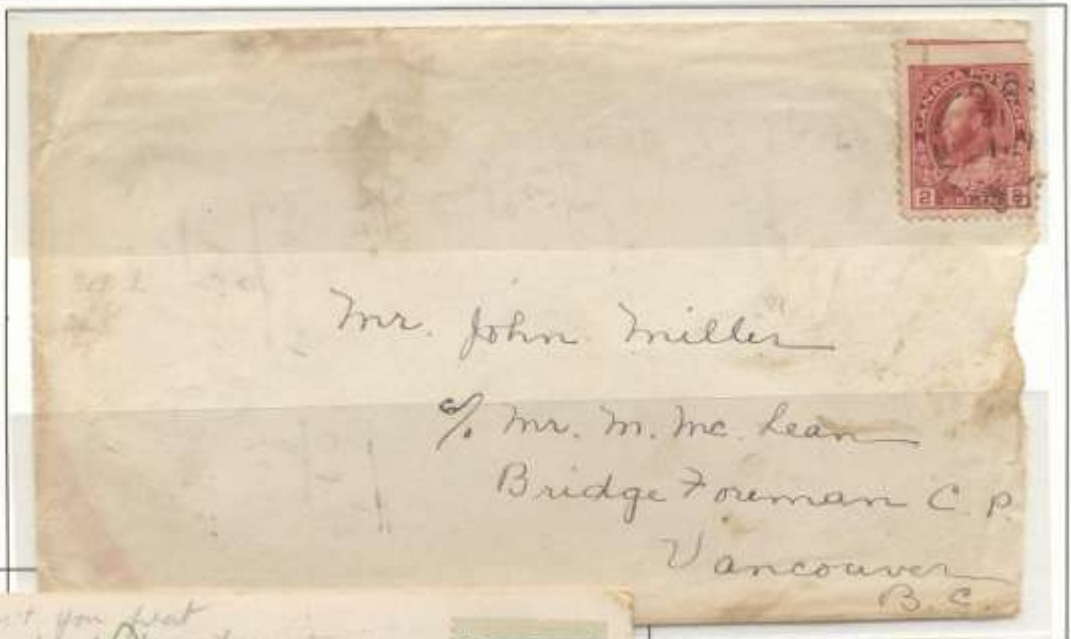 CANADA POSTAGE
2 2
Mr. John Miller
c/o Mr. M. Mc. Lean
Bridge Foreman C. P.
Vancouver
B. C.
you